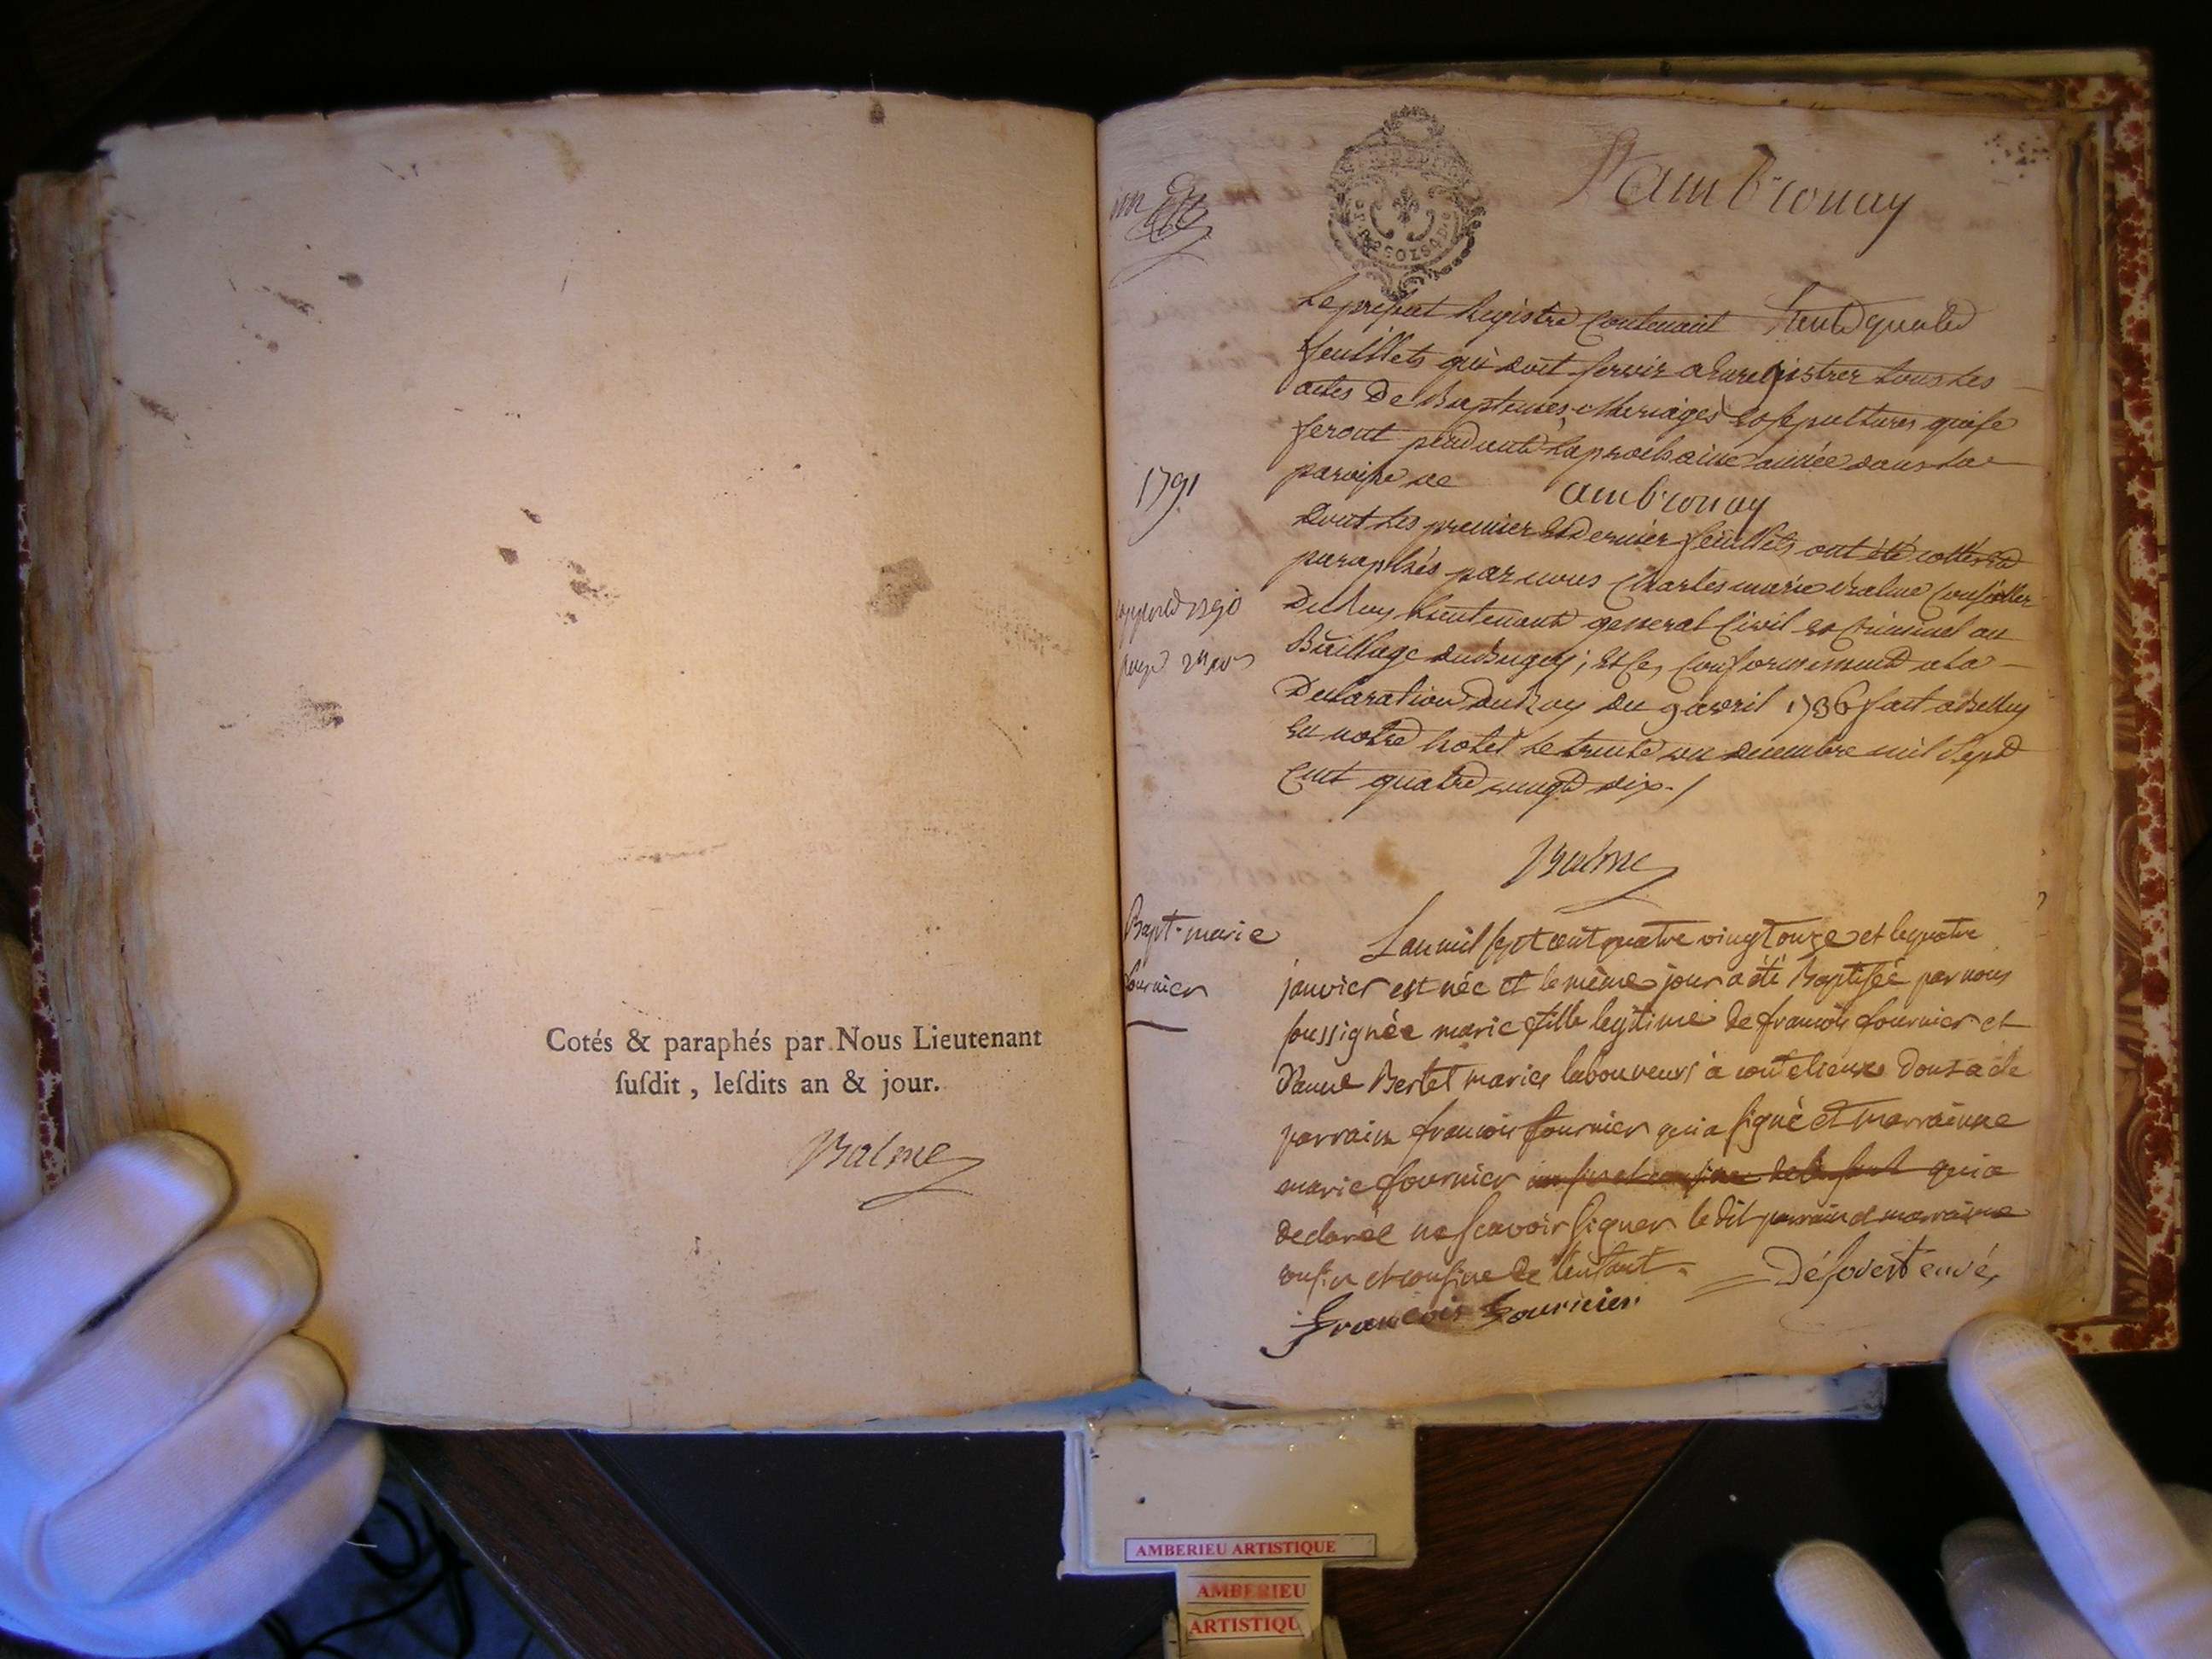 Cotés & paraphés par Nous Lieutenant
ſuſdit, leſdits an & jour.
Balme
P. ambronay
Le présent Registre contenant trente quatre
feuillets qui doit servir a Enregistrer tous les
actes De Baptemes Mariages et sepultures qui se
feront pendant la prochaine année dans la
paroisse de ambronay
dont les premier et dernier feuillets ont été cottés et
paraphés par nous Charles marie Balme Conseiller
Du Roy Lieutenant general Civil et Criminel au
Baillage du Bugey; et ce, Conformement a la
Declaration du Roy du 9 avril 1736 fait a Belley
en notre hotel le trente un decembre mil sept
cent quatre vingt dix./
Balme
1791
1790
Bapt. marie
fournier
L'an mil sept cent quatre vingt onze et le quatre
janvier est née et le même jour a été Baptisée par nous
soussignée marie fille legitime de francois fournier et
D'anne Bertet mariés laboureurs à dont a ete
parrain francois fournier qui a signé et marrainne
marie fournier qui a
declaréé ne scavoir signer le dit parrain et marraine
cousin et cousine de l'enfant.
françois fournier
AMBERIEU ARTISTIQUE
AMBERIEU
ARTISTIQU